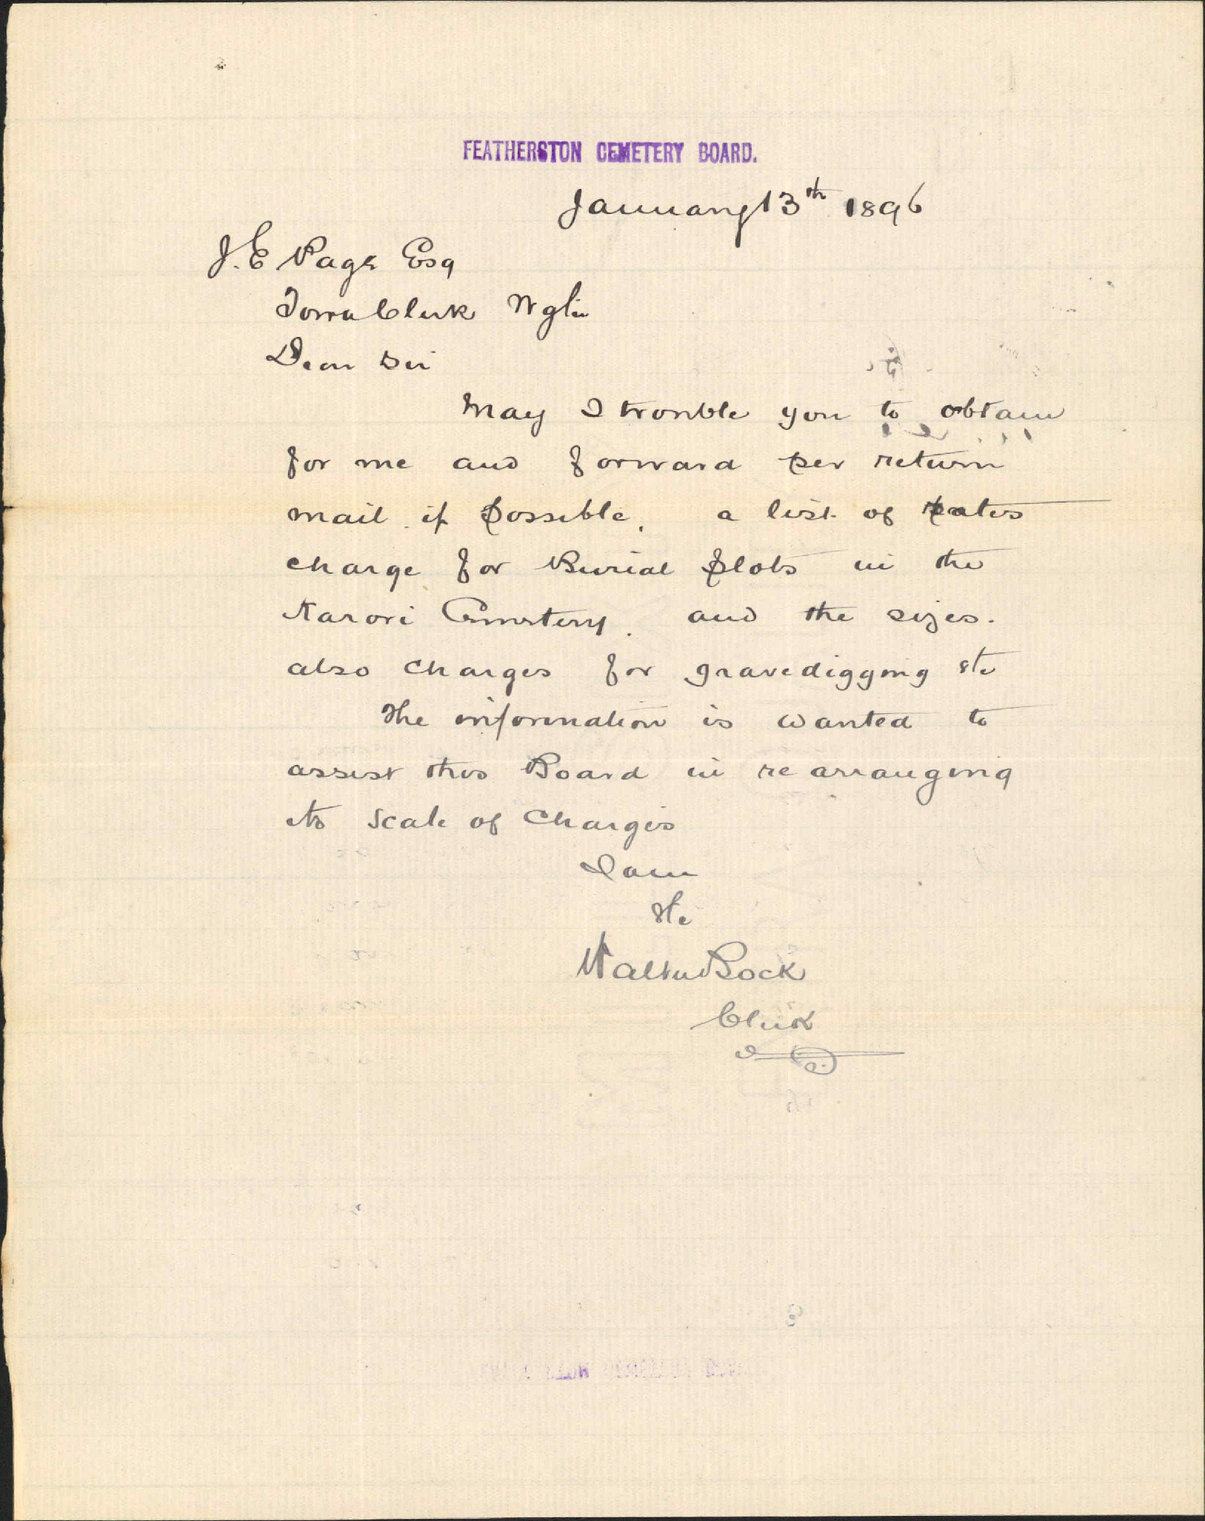 FEATHERSTON CEMETERY BOARD.
January 13th 1896
J. E Page Esq
Town Clerk Wgtn
Dear Sir
May I trouble you to obtain
for me and forward per return
mail if possible, a list of rates
charge for Burial plots in the
Karori Cemetery. and the sizes.
also charges for gravedigging etc
The information is wanted to
assist this Board in re arranging
its Scale of Charges
I am
Etc
Walter Bock
Clerk